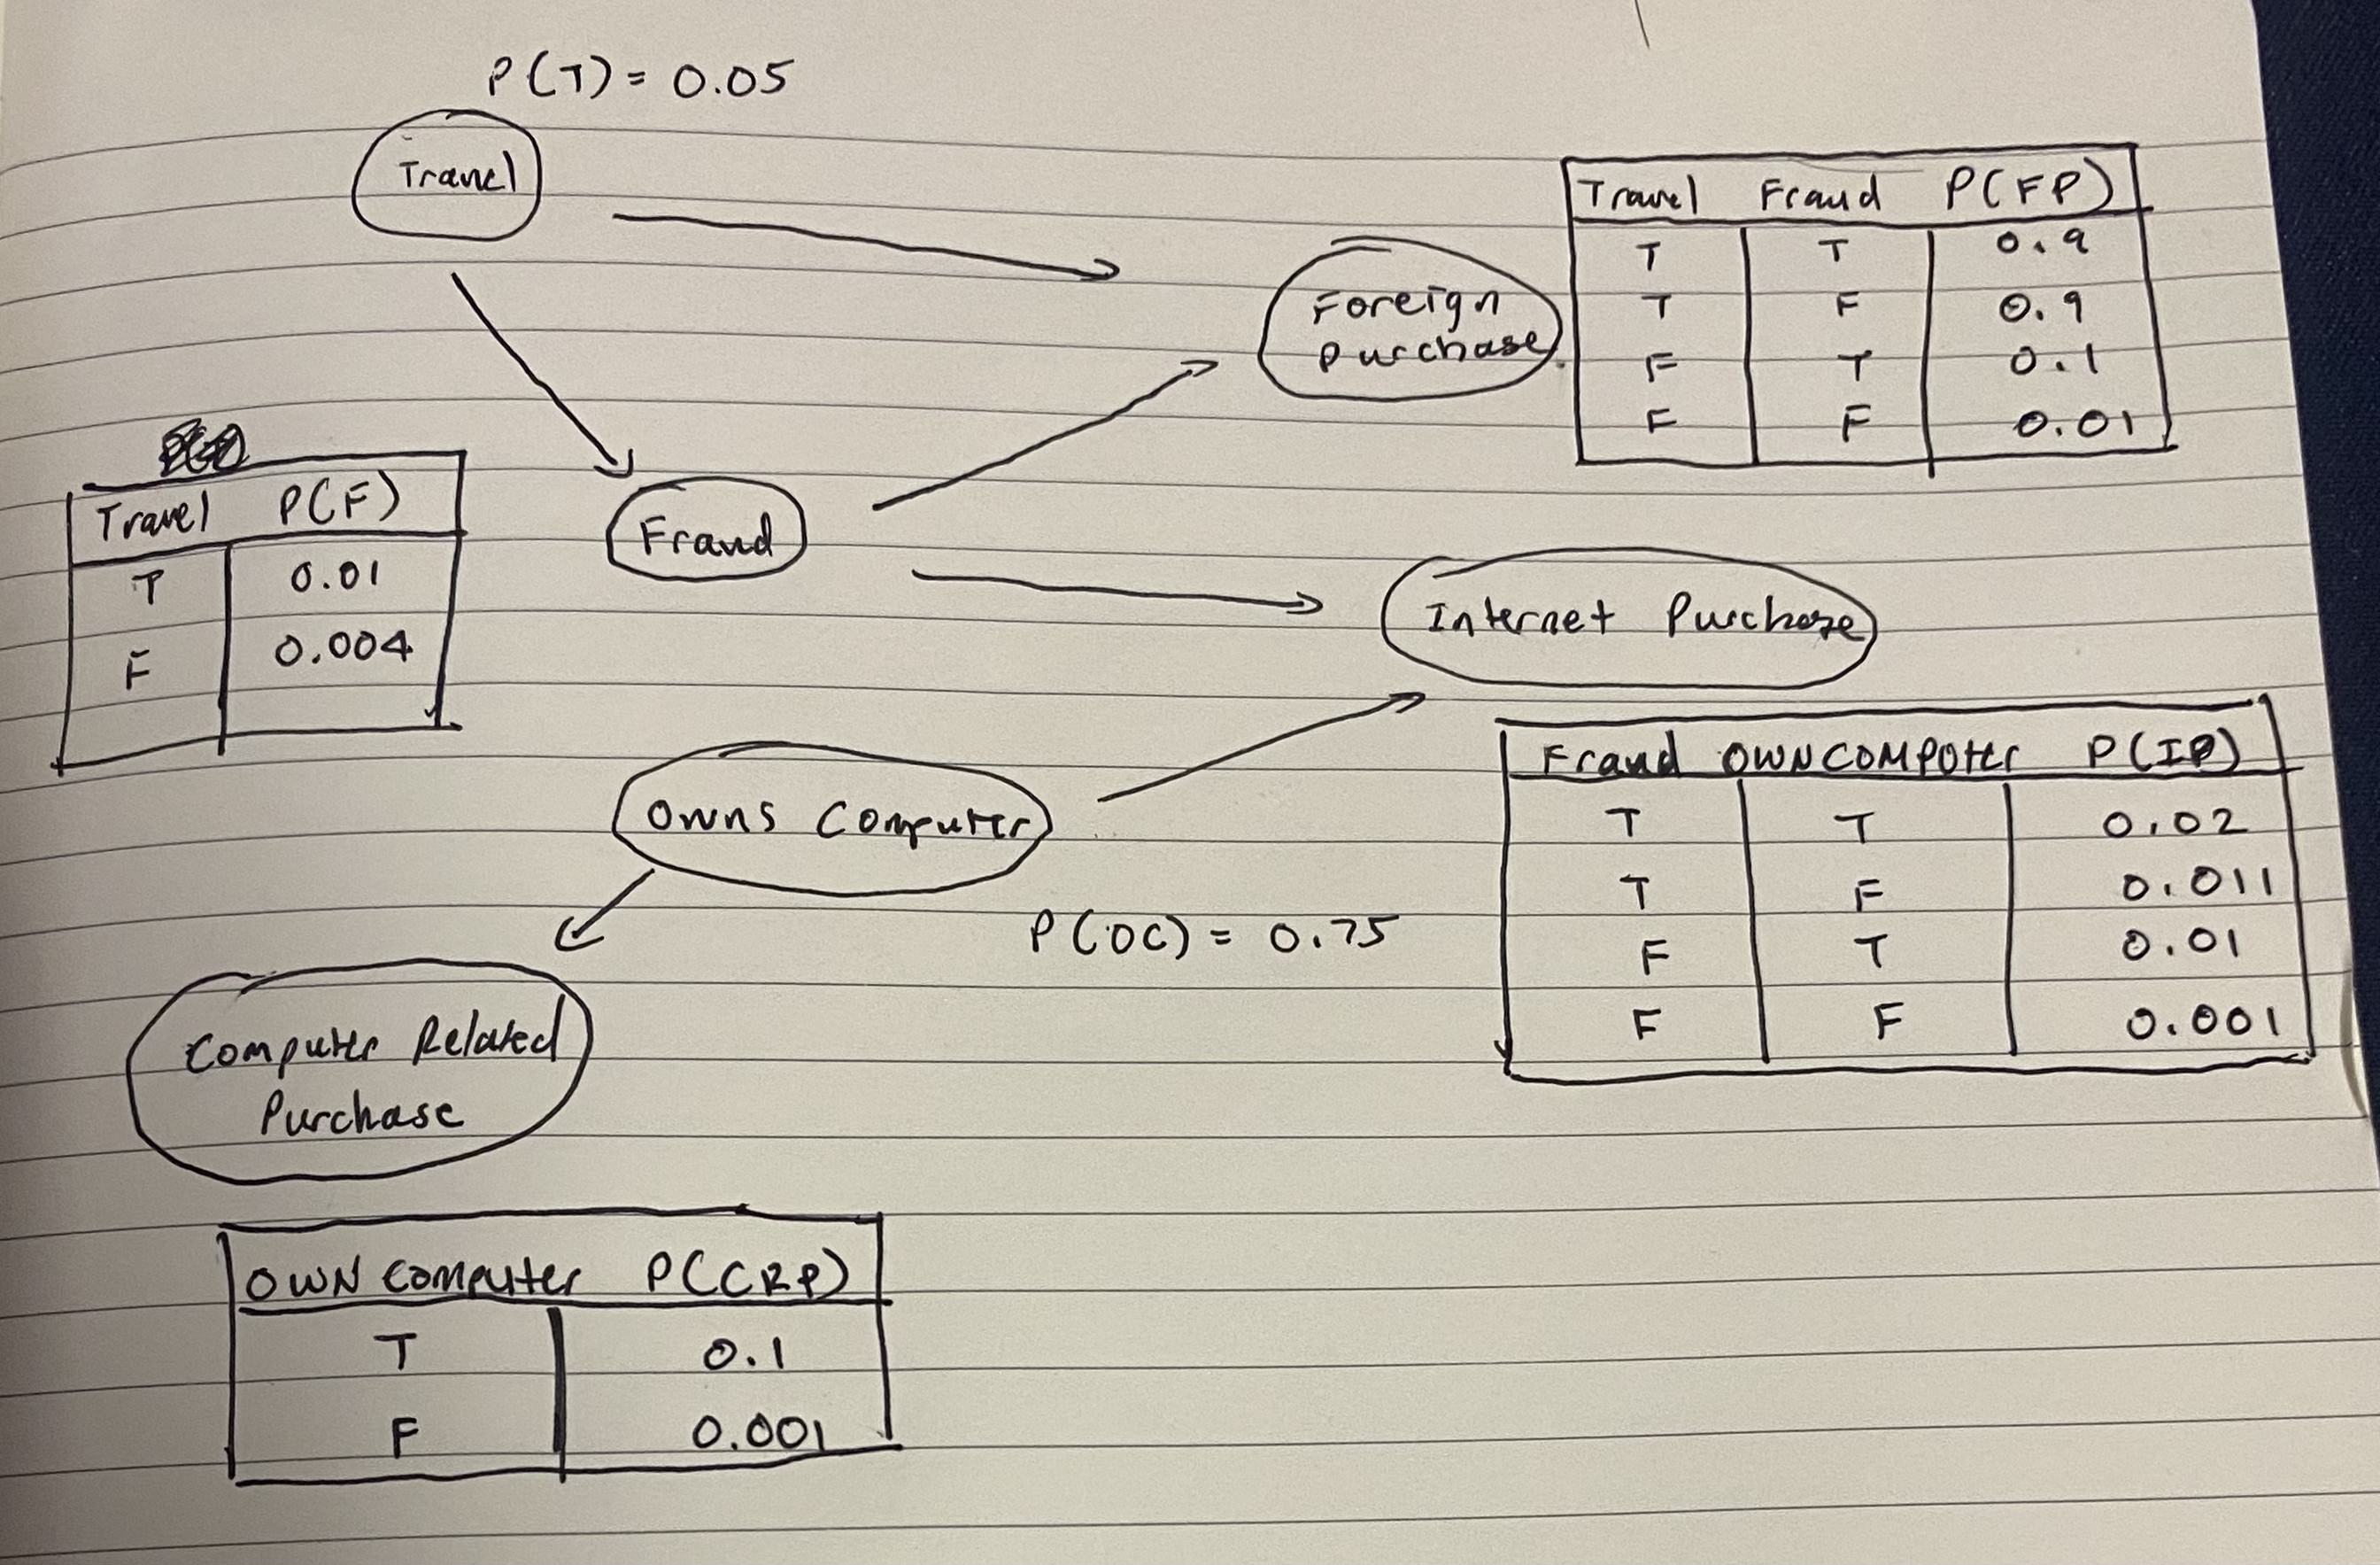 P(T) = 0.05
Travel
Travel Fraud P(FP)
T T 0.9
T F 0.9
F T 0.1
F F 0.01
Foreign
Purchase
Travel P(F)
T 0.01
F 0.004
Fraud
Internet Purchase
Fraud OWNCOMPUter P(IP)
T T 0.02
T F 0.011
F T 0.01
F F 0.001
Owns Computer
P(OC) = 0.75
Computer Related
Purchase
OWN Computer P(CRP)
T 0.1
F 0.001